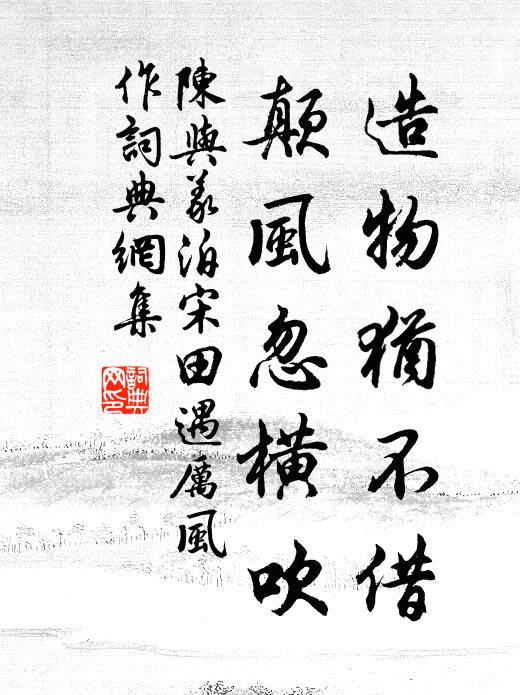 造物猶不借
顛風忽橫吹
陳與義泊宋田遇厲風
作詞典網集
詞典
网印